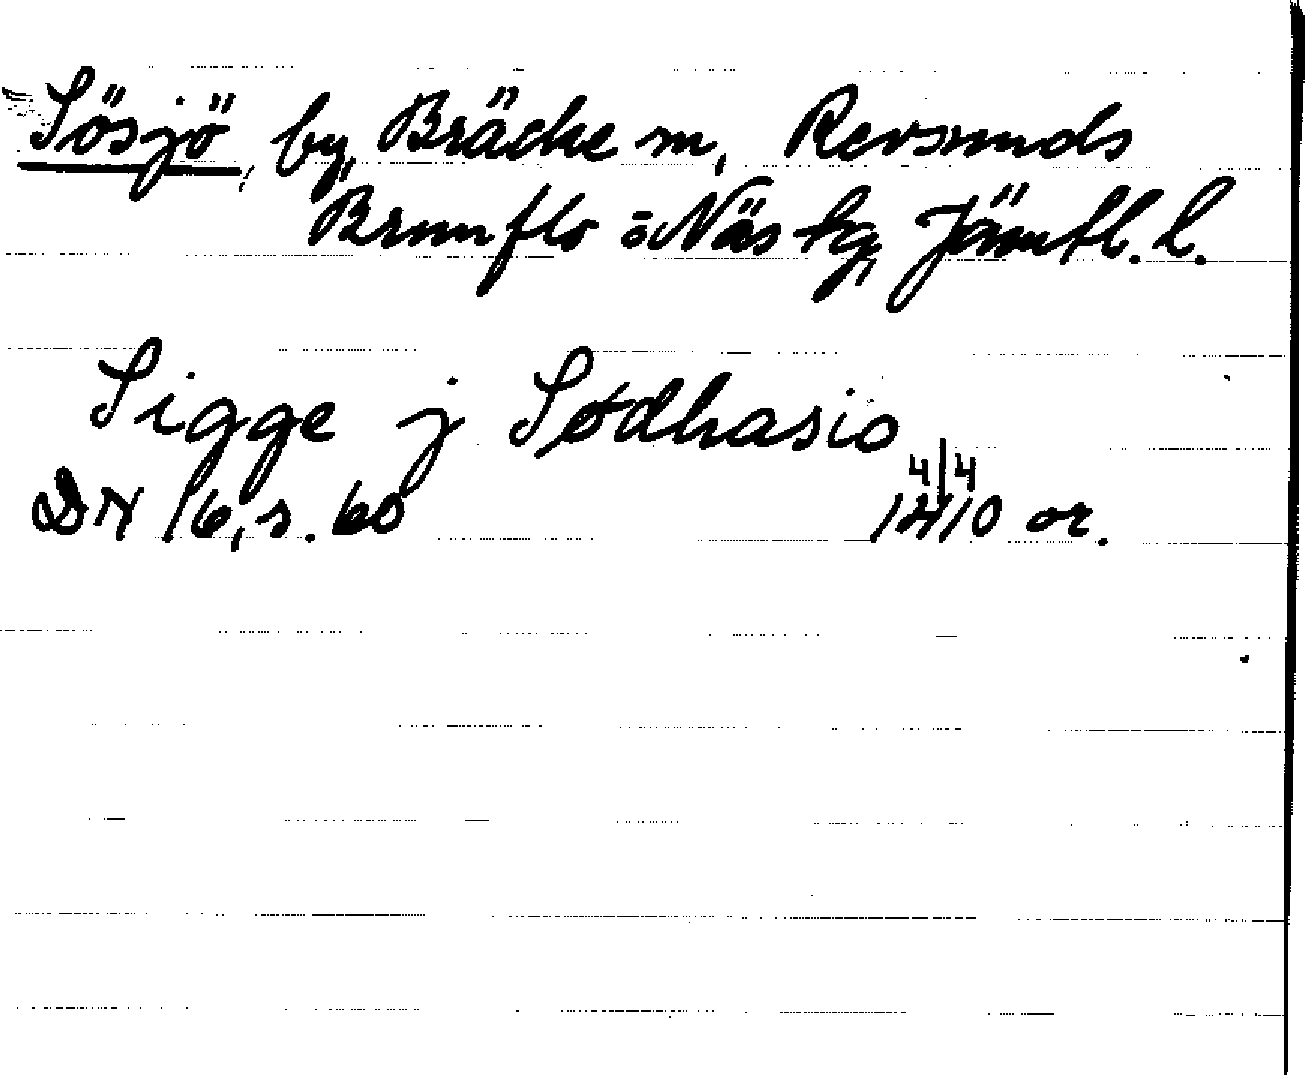 Sösjö, by, Bräcke sn, Revsunds
Brunflo o Näs tg, Jämtl. l.
Sigge j Sødhasio
DN 16, s. 60 4/4 1410 or.